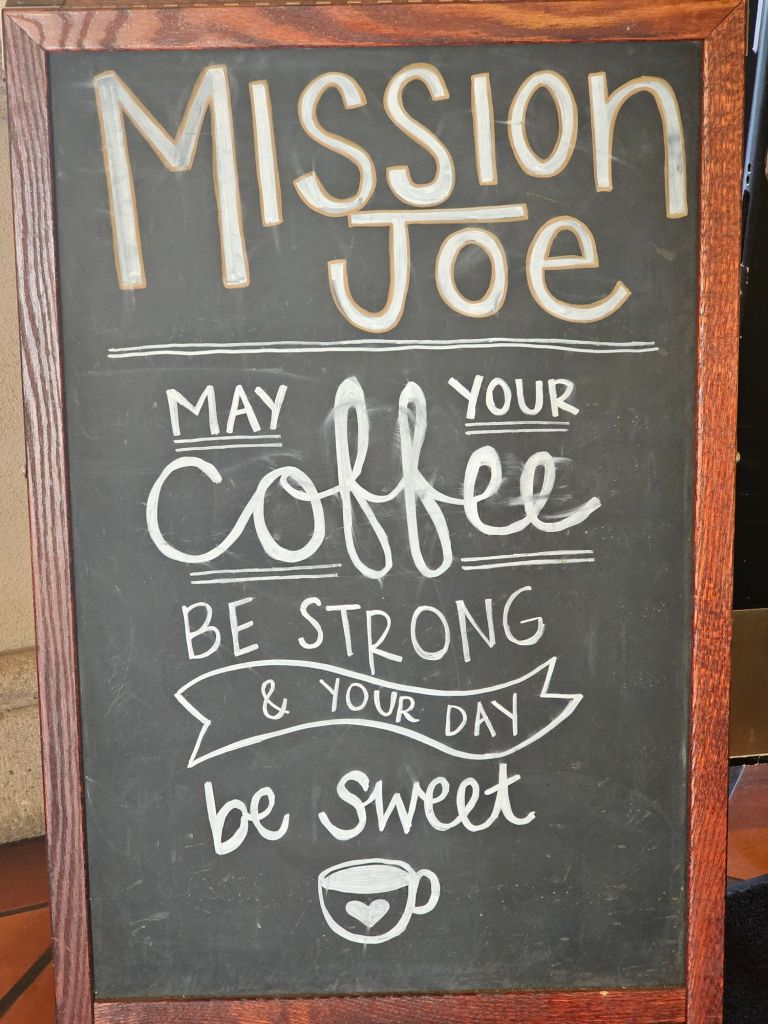 Mission
Joe
MAY YOUR
coffee
BE STRONG
& YOUR DAY
be sweet